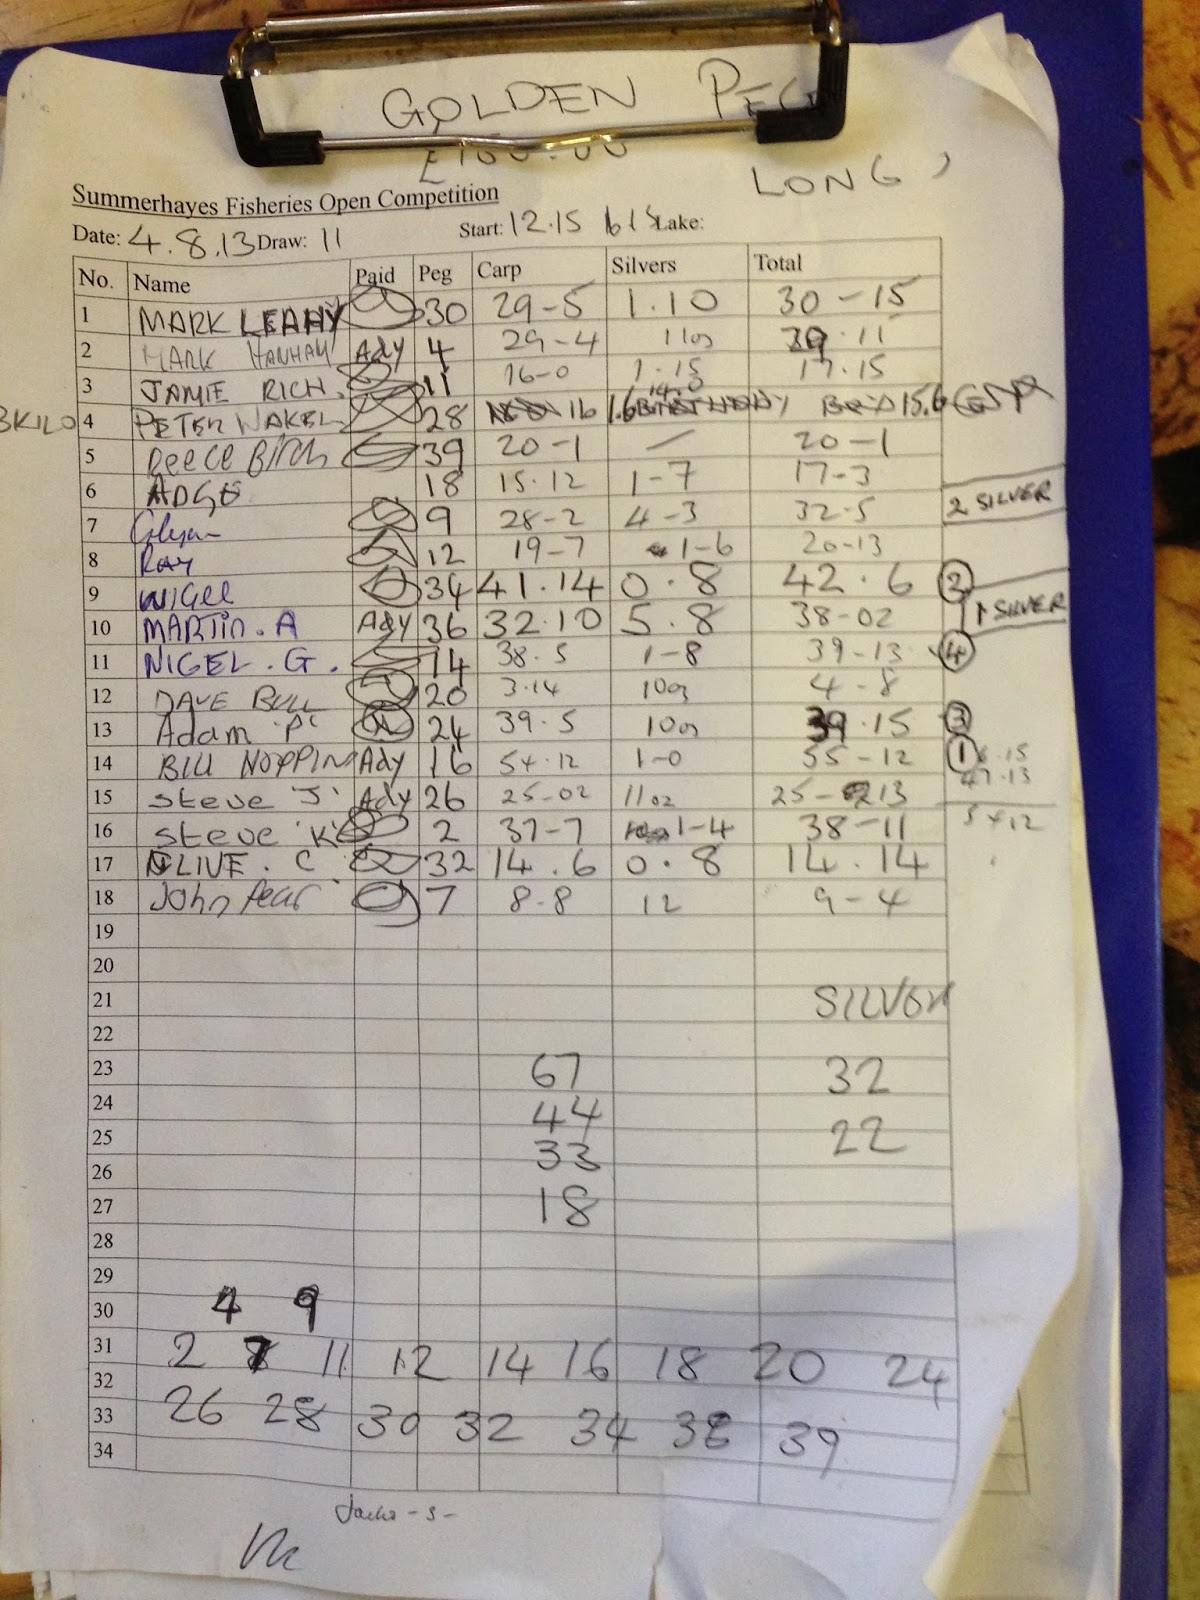 GOLDEN PEG
£100.00
LONG
Summerhayes Fisheries Open Competition
Date: 4.8.13 Draw: 11 Start: 12.15 Lake:
No. Name Paid Peg Carp Silvers Total
1 MARK LEAHY 30 29-5 1.10 30-15
2 MARK HANHAM Ady 4 29-4 11oz 29.11
3 JAMIE RICH. 11 16-0 1.15 17.15
3KILO 4 PETER 28 16 14.0 15.6
5 Reece Birch 39 20-1 — 20-1
6 ADGE 18 15.12 1-7 17-3
2 SILVER
7 Glyn 9 28-2 4-3 32.5
8 RAY 12 19-7 1-6 20-13
9 NIGEL 34 41.14 0.8 42.6 2
1 SILVER
10 MARTIN.A Ady 36 32.10 5.8 38-02
11 NIGEL.G. 14 38.5 1-8 39-13 4
12 DAVE BULL 20 3.14 10oz 4-8
13 Adam 'P' 24 39.5 10oz 39.15 3
14 BILL HOPPIN Ady 16 54.12 1-0 55-12 1 6.15
47.13
15 Steve 'J' Ady 26 25-02 11oz 25-13
54 12
16 Steve 'K' 2 37-7 1-4 38-11
17 CLIVE.C 32 14.6 0.8 14.14
18 John Pear 7 8-8 12 9-4
19
20
21 SILVER
22
23 67 32
24 44
25 33 22
26
27 18
28
29
30 4 9
31 2 7 11 12 14 16 18 20 24
32
33 26 28 30 32 34 36 39
34